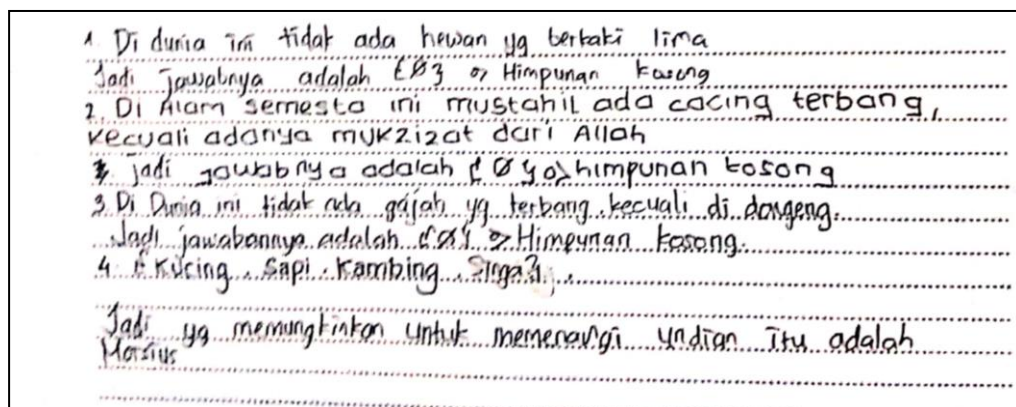 1. Di dunia ini tidak ada hewan yg berkaki lima
Jadi jawabnya adalah {Ø} => Himpunan kosong
2. Di Alam semesta ini mustahil ada cacing terbang,
kecuali adanya mukzizat dari Allah
jadi jawabnya adalah {Ø} => himpunan kosong
3. Di Dunia ini tidak ada gajah yg terbang. kecuali di dongeng.
Jadi jawabannya adalah {Ø} => Himpunan kosong.
4. {Kucing. Sapi. Kambing. Singa}.
Jadi yg memungkinkan untuk memenangi undian itu adalah